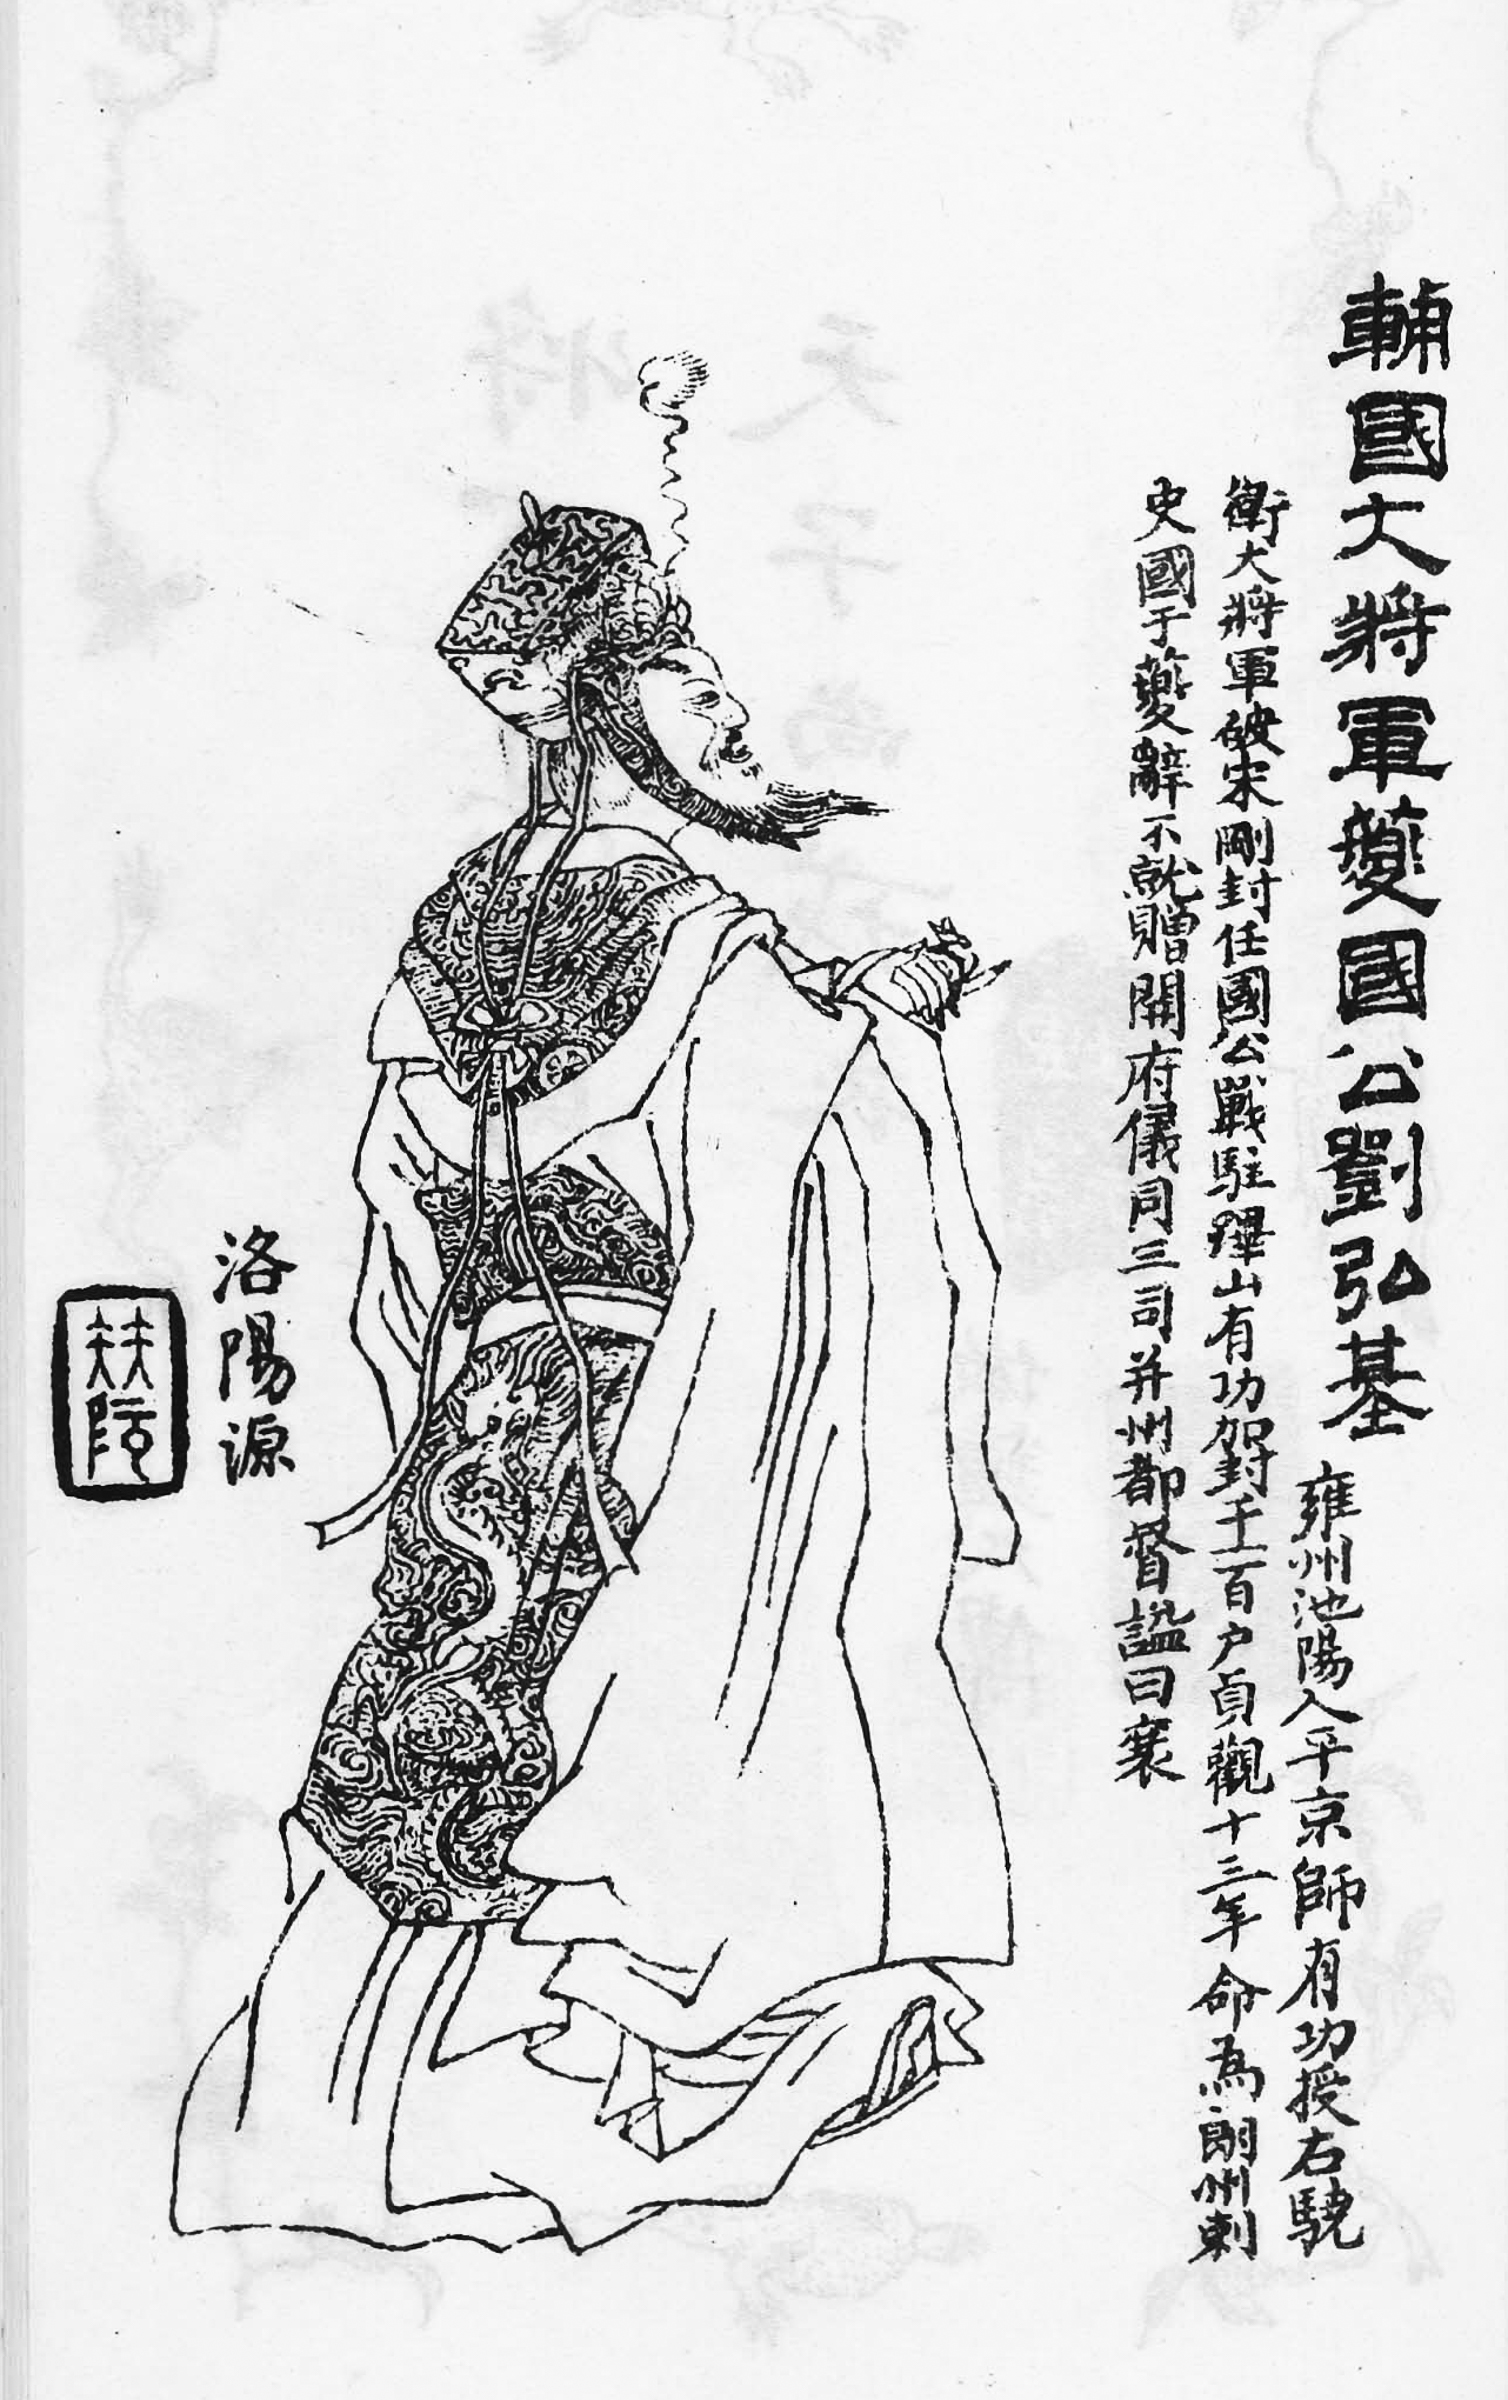 輔國大將軍夔國公劉弘基
雍州池陽人平京師有功授右驍
衛大將軍破宋剛封任國公戰駐蹕山有功加封千一百户貞觀十三年命為朗州刺
史國于夔辭不就贈開府儀同三司并州都督諡曰襄
洛陽源